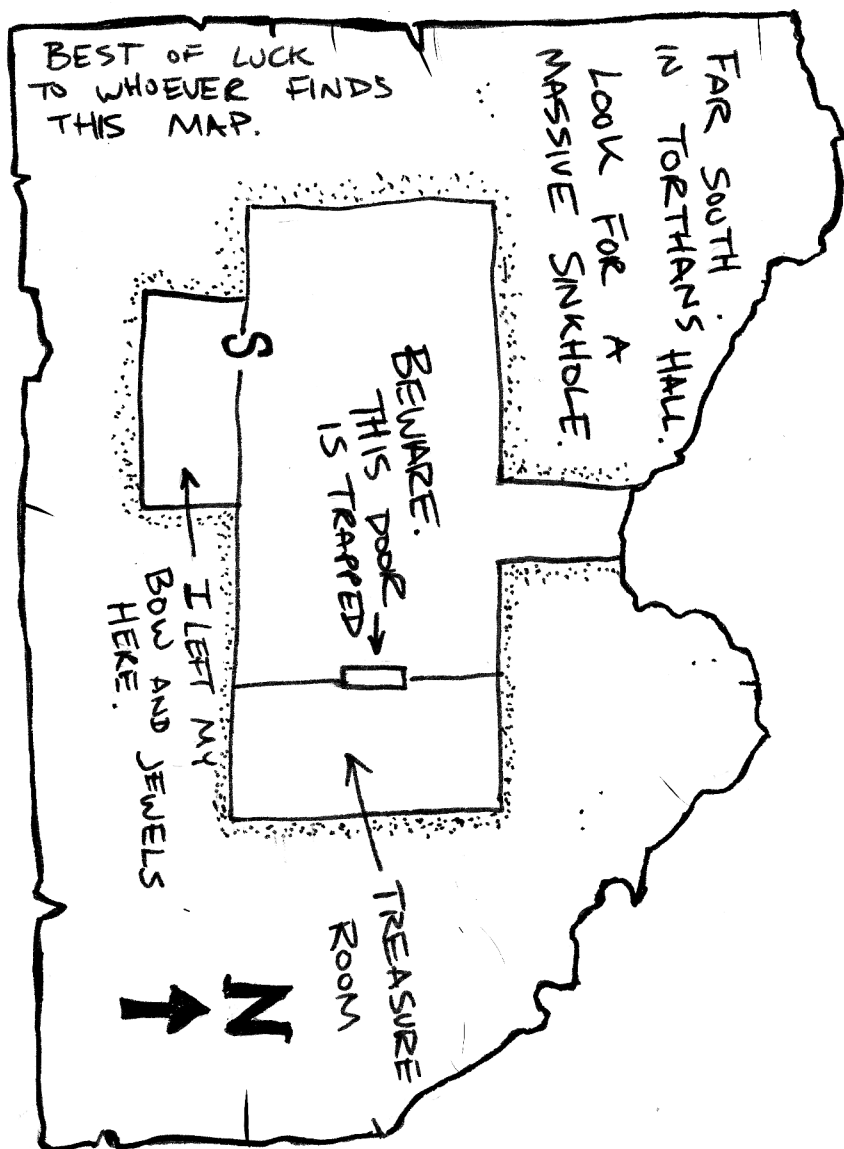 BEST OF LUCK
TO WHOEVER FINDS
THIS MAP.
FAR SOUTH
IN TORTHAN'S HALL.
LOOK FOR A
MASSIVE SINKHOLE.
BEWARE.
THIS DOOR
IS TRAPPED
S
I LEFT MY
BOW AND JEWELS
HERE.
TREASURE
ROOM
N